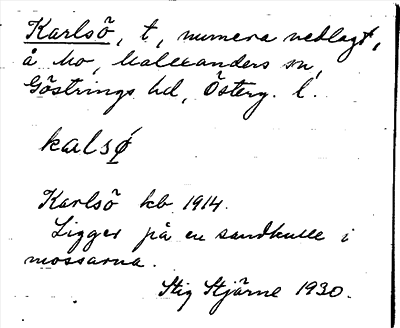 Karlsö, t, numera nedlagt,
å Mo, Kalexanders sn,
Göstrings hd, Österg. l.
kalsǿ
Karlsö kb 1914.
Ligger på en sandkulle i
mossarna.
Stig Stjärne 1930.